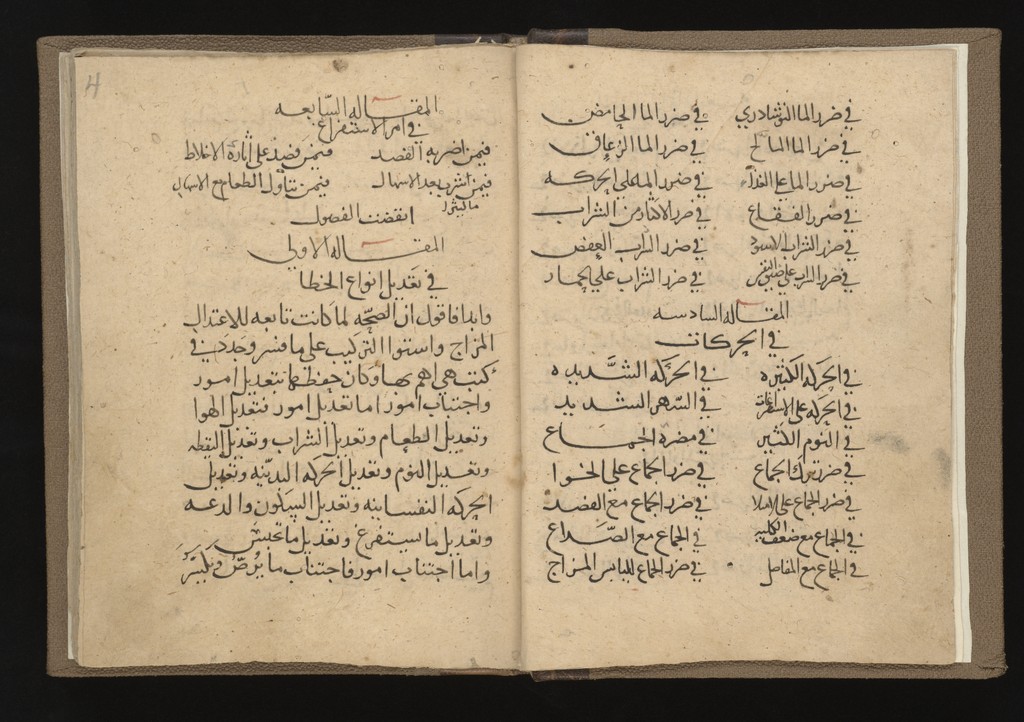 في ضرر الما النوشادري في ضرر الما الحامض
في ضرر الما المالح في ضرر الما الزعاق
في ضرر الما على الغذا في ضرر الما على الحركه
في ضرر الفقاع في ضرر الاكثار من الشراب
في ضرر الشراب الاسود في ضرر الشراب العفص
في ضرر الشراب على في ضرر الشراب على الخمار
المقاله السادسه
في الحركات
في الحركه الكثيره في الحركه الشديده
في الحركه على الاستفراغات في السهر الشديد
في النوم الكثير في مضره الجماع
في ضرر ترك الجماع في ضرر الجماع على الخوا
في ضرر الجماع على الامتلا في ضرر الجماع مع الفصد
في الجماع مع ضعف في الجماع مع الصداع
في الجماع مع المفاصل في ضرر الجماع لليابس المزاج
4
المقاله السابعه
في امر الاستفراغ
فيمن اضر به الفصد فيمن فصد على اثارة الاخلاط
فيمن اشرب بعد الاسهال فيمن تناول الطعام مع الاسهال
انقضت الفصول
المقاله الاولى
في تعديل انواع الخطا
وابدا فاقول ان الصحه لما كانت تابعه للاعتدال
المزاج واستوا التركيب على ما فسر وحدد في
كتب هي اهم بها وكان حفظهما بتعديل امور
واجتناب امور اما تعديل امور فتعديل الهوا
وتعديل الطعام وتعديل الشراب وتعديل اليقظه
وتعديل النوم وتعديل الحركه البدنيه وتعديل
الحركه النفسانيه وتعديل السكون والدعه
وتعديل ما يستفرغ وتعديل ما يحتبس
واما اجتناب امور فاجتناب ما يرض ويكسر